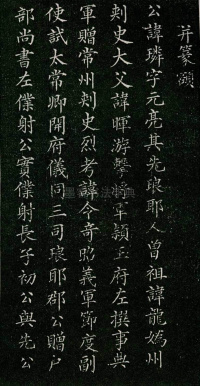 并篆額
公諱璘字元亮其先琅耶人曾祖諱龍為州
刺史大父諱暉游擊將軍潁王府左撰事典
軍贈常州刾史烈考諱令奇昭義軍節度副
使試太常卿開府儀同三司琅耶郡公贈戶
部尚書左僕射公實僕射長子初公與先公